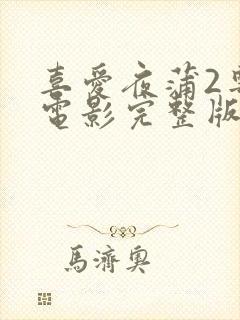 喜愛夜蒲2
電影完整版
馬濟奧